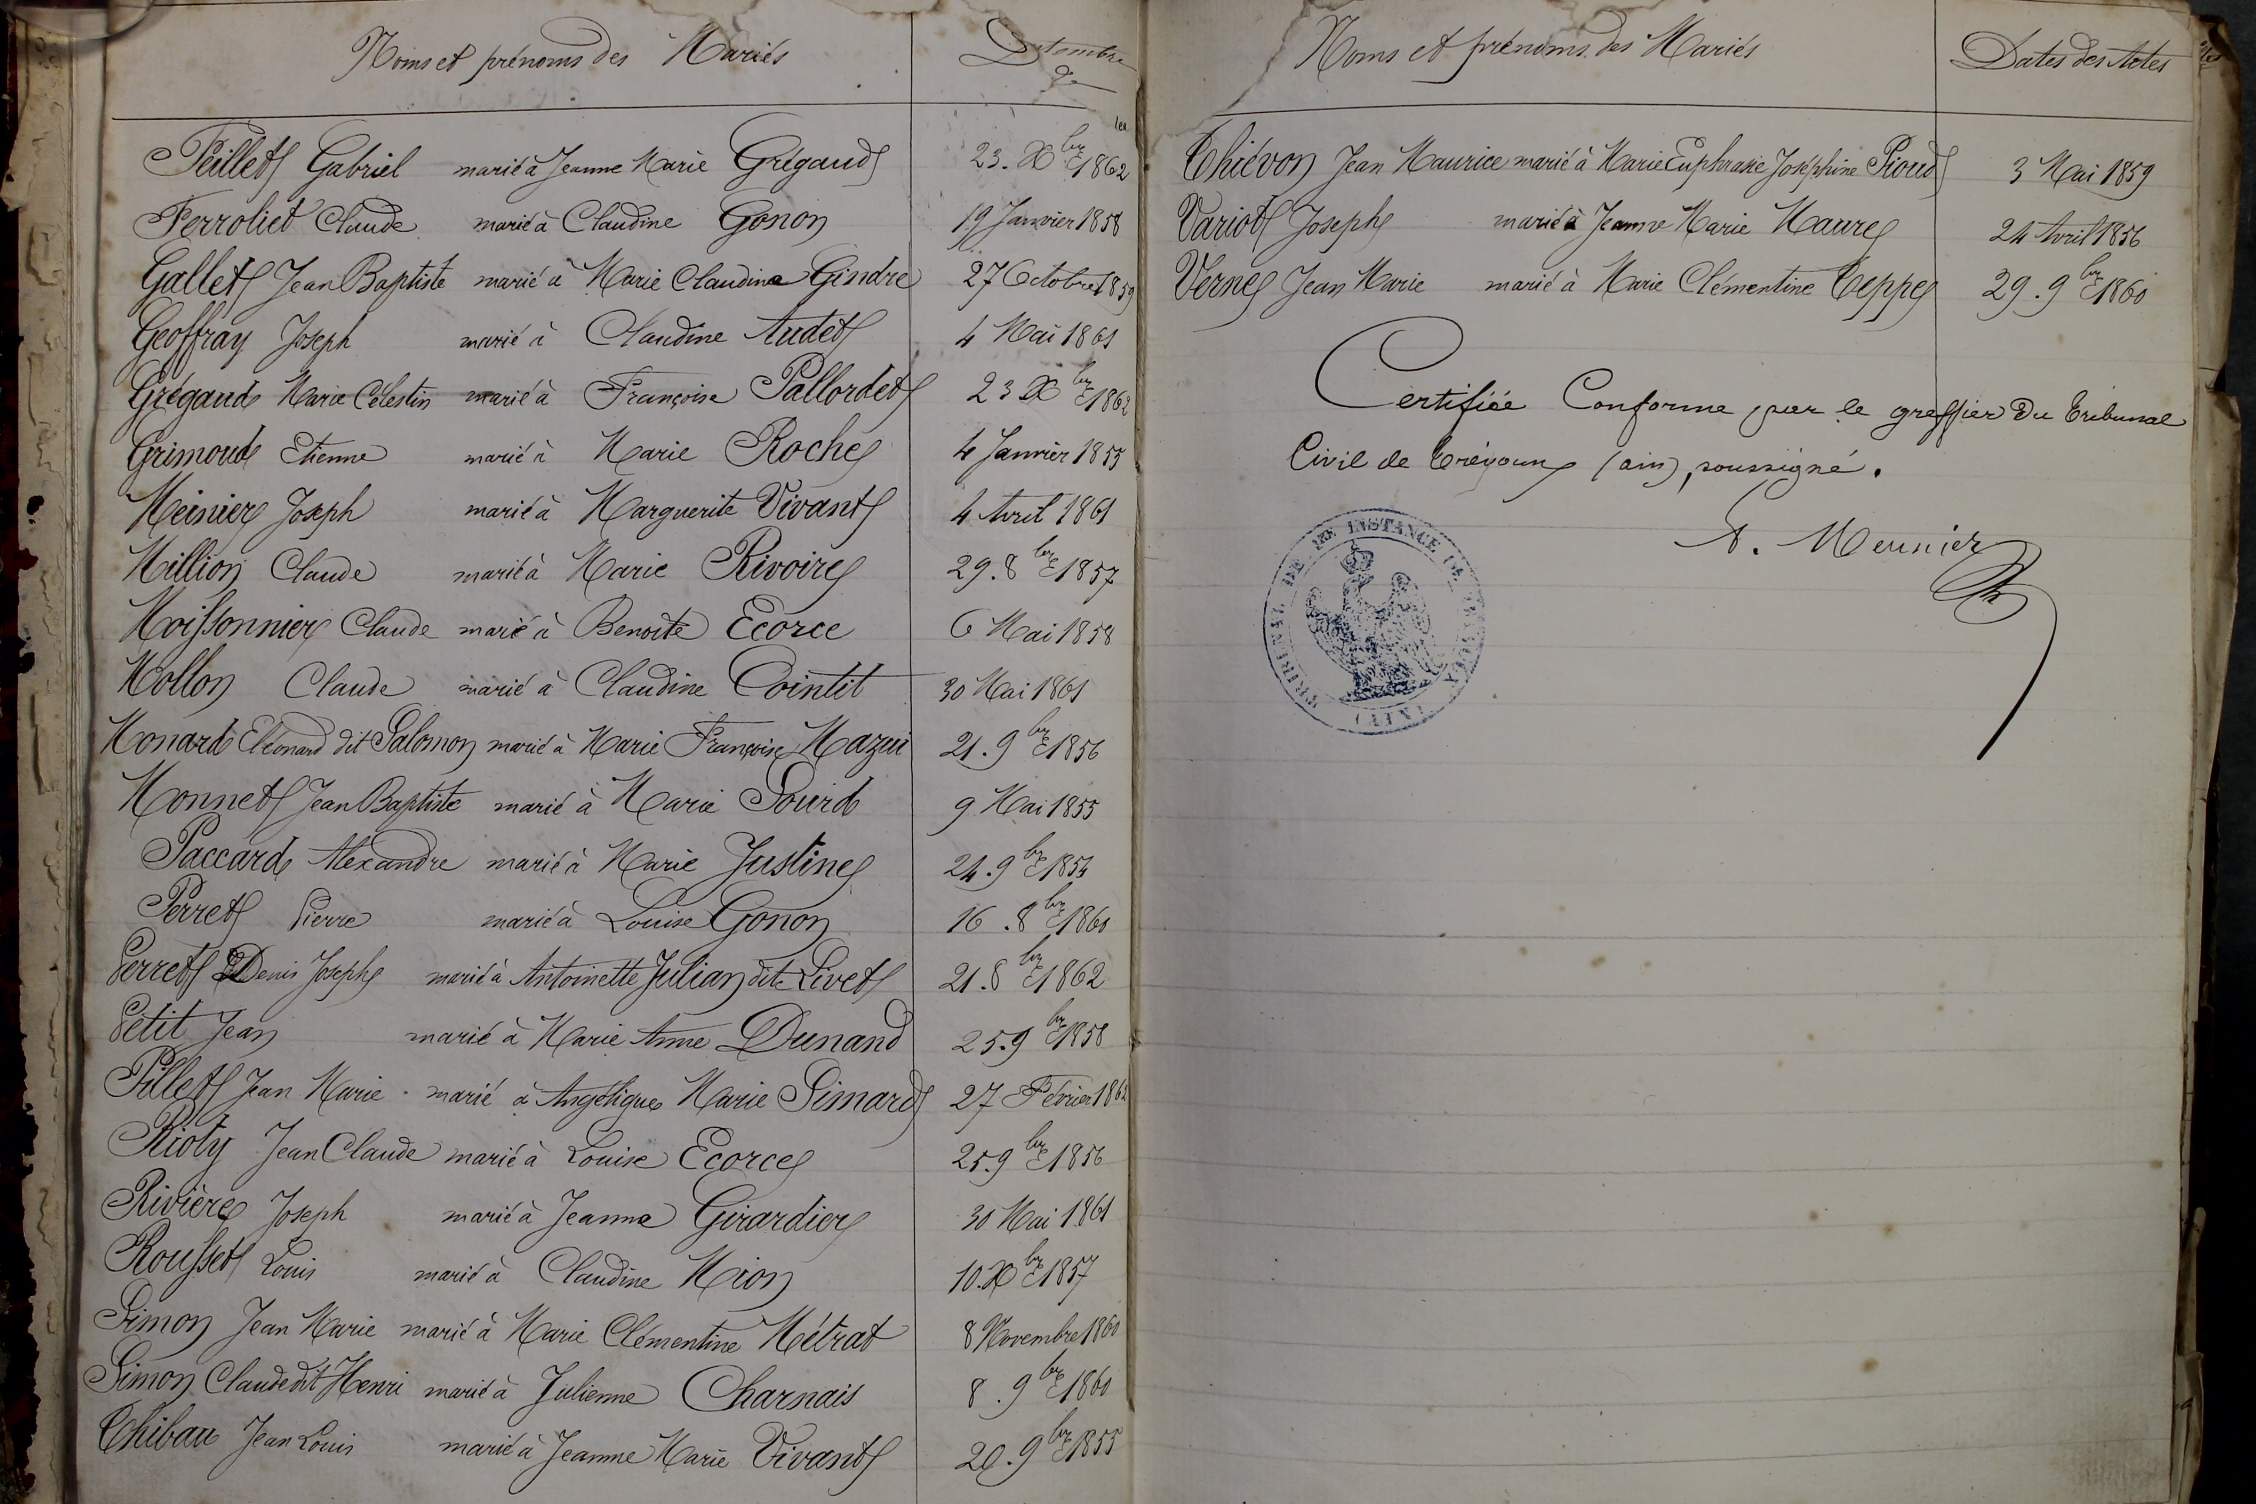 Noms et prénoms des Mariés
Feillet Gabriel marié à Jeanne Marie Grégaud 23. Xbre 1862
Ferroliet Claude marié à Claudine Gonon 19 Janvier 1858
Gallet Jean Baptiste marié à Marie Claudine Gindre 27 Octobre 1859
Geoffray Joseph marié à Claudine Audet 4 Mai 1861
Grégaud Marie Célestin marié à Françoise Pallordet 23 Xbre 1862
Grimoud Etienne marié à Marie Roche 4 Janvier 1855
Meinier Joseph marié à Marguerite Vivant 4 Avril 1861
Million Claude marié à Marie Rivoire 29. 8bre 1857
Moissonnier Claude marié à Benoite Ecorce 6 Mai 1858
Mollon Claude marié à Claudine Cointit 30 Mai 1861
Monard Eléonard dit Salomon marié à Marie Françoise Mazui 21. 9bre 1856
Monnet Jean Baptiste marié à Marie Sourd 9 Mai 1855
Paccard Alexandre marié à Marie Justine 24. 9bre
Perret Pierre marié à Louise Gonon 16. 8bre 1860
Perret Denis Joseph marié à Antoinette Julian dit Livet 21. 8bre 1862
Petit Jean marié à Marie Anne Dunand 25. 9bre 1858
Pillet Jean Marie marié à Angélique Marie Simard 27 Février 1862
Rioty Jean Claude marié à Louise Ecorce 25. 9bre 1856
Rivière Joseph marié à Jeanne Girardier 30 Mai 1861
Rousset Louis marié à Claudine Mion 10. Xbre 1857
Simon Jean Marie marié à Marie Clémentine Métrat 8 Novembre 1860
Simon Claude dit Henri marié à Julienne Charnais 8. 9bre 1860
Thibau Jean Louis marié à Jeanne Marie Vivant 20. 9bre 1855
Noms et prénoms des Mariés Dates des Actes
Thiévon Jean Maurice marié à Marie Euphrasie Joséphine Pioud 3 Mai 1859
Variot Joseph marié à Jeanne Marie Maure 24 Avril 1856
Verne Jean Marie marié à Marie Clémentine Teppe 29. 9bre 1860
Certifiée Conforme par le greffier du Tribunal
Civil de Trévoux (ain), soussigné.
A. Meunier
TRIBUNAL DE 1RE INSTANCE DE TREVOUX (AIN)